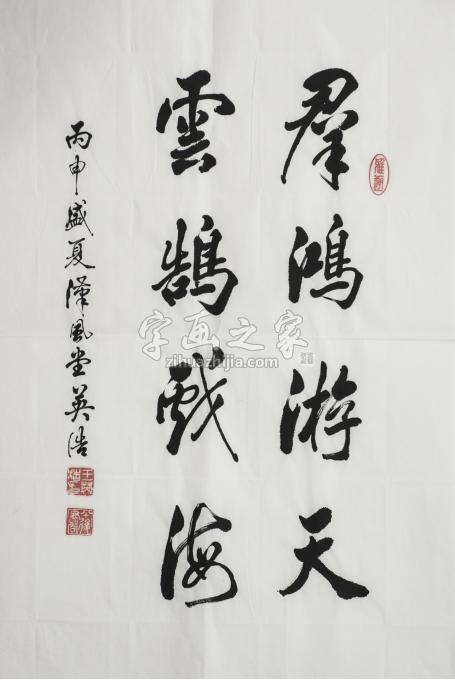 羣鴻游天
雲鵠戲海
丙申盛夏漢風堂英浩
字画之家
zihuazhijia.com